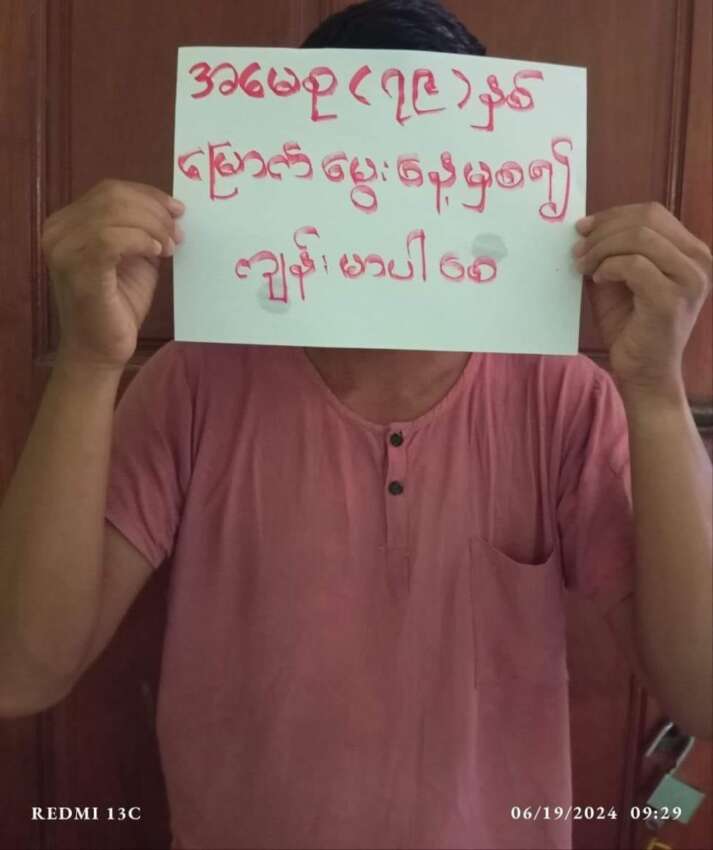 အမေစု (၇၉) နှစ်
မြောက်မွေးနေ့မှစ၍
ကျန်းမာပါစေ
REDMI 13C
06/19/2024 09:29